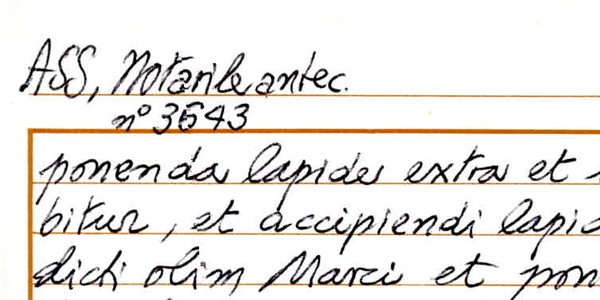 ASS, Notarile antec.
n° 3643
ponenda lapides extra et
bitur, et accipiendi lapid
dicti olim Marci et pon